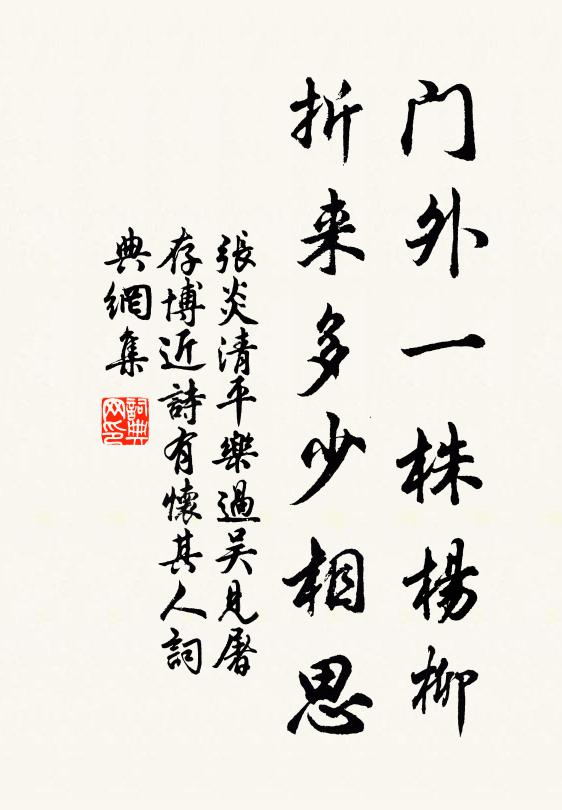 门外一株楊柳
折来多少相思
張炎清平樂過吴見屠
存博近詩有懷其人詞
典網集
詞典网印